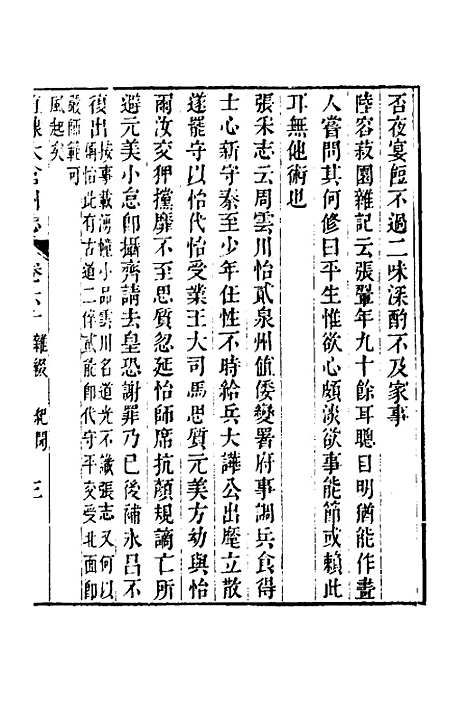 否夜宴飣不過二味深酌不及家事
陸容菽園雜記云張翬年九十餘耳聰目明猶能作畫
人嘗問其何修曰平生惟欲心頗淡欲事能節或賴此
耳無他術也
張采志云周雲川怡貳泉州値倭變署府事調兵食得
士心新守秦至少年任性不時給兵大譁公出麾立散
遂罷守以怡代怡受業王大司馬思質元美方幼與怡
爾汝交狎攩靡不至思質忽延怡師席抗顏規謫亡所
避元美小怠師攝齊請去皇恐謝罪乃已後補永昌不
復出按事載湧幢小品雲川名道光不識張志又何以
稱怡此有古道二倅貳能卽代守平交受北面卽
嚴師範可
風起矣
太倉州志
卷六十 雜綴 紀聞 三